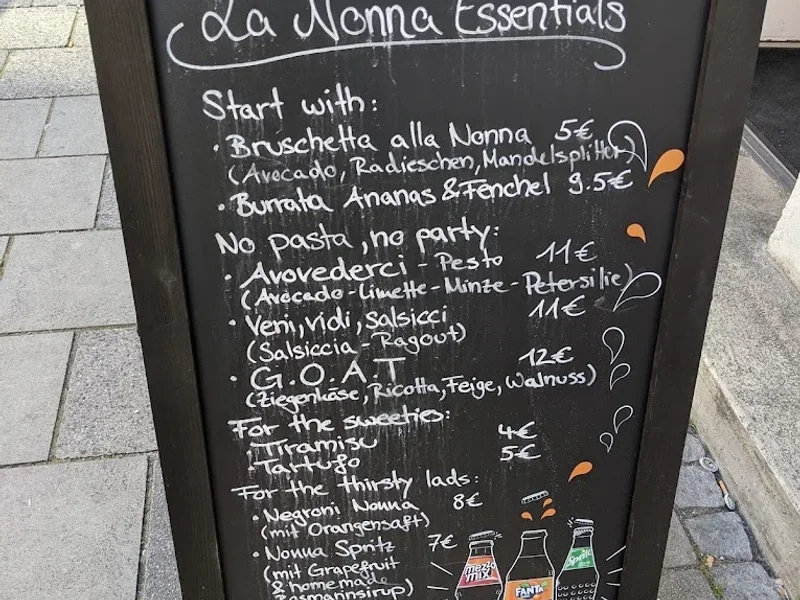 La Nonna Essentials
Start with:
· Bruschetta alla Nonna 5€
(Avocado, Radieschen, Mandelsplitter)
· Burrata Ananas & Fenchel 9.5€
No pasta, no party:
· Avovederci - Pesto 11€
(Avocado - Limette - Minze - Petersilie)
· Veni, vidi, salsicci 11€
(Salsiccia - Ragout)
· G.O.A.T 12€
(Ziegenkäse, Ricotta, Feige, Walnuss)
For the sweeties:
· Tiramisu 4€
· Tartufo 5€
For the thirsty lads:
· Negroni Nonna 8€
(mit Orangensaft)
· Nonna Spritz 7€
(mit Grapefruit
& homemade
Rosmarinsirup)
mezzo mix
FANTA
Sprite